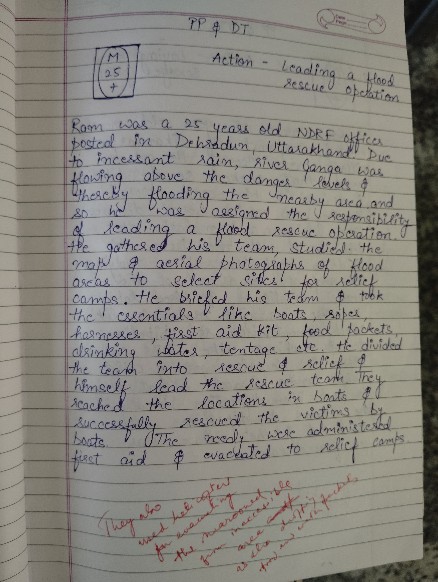 PP & DT
M
25
+
Action - Leading a flood
rescue operation
Ram was a 25 years old NDRF officer
posted in Dehradun, Uttarakhand. Due
to incessant rain, river Ganga was
flowing above the danger levels &
thereby flooding the nearby area and
so he was assigned the responsibility
of leading a flood rescue operation.
He gathered his team, studied the
map & aerial photographs of flood
areas to select sites for relief
camps. He briefed his team & took
the essentials like boats, ropes,
harnesses, first aid kit, food packets,
drinking water, tentage etc. He divided
the team into rescue & relief &
himself lead the rescue team. They
reached the locations in boats &
successfully rescued the victims by
boats. The needy were administered
first aid & evacuated to relief camps.
They also
used helicopter
for evacuating
the marooned
from inaccessible
area
as also dropping
food packets